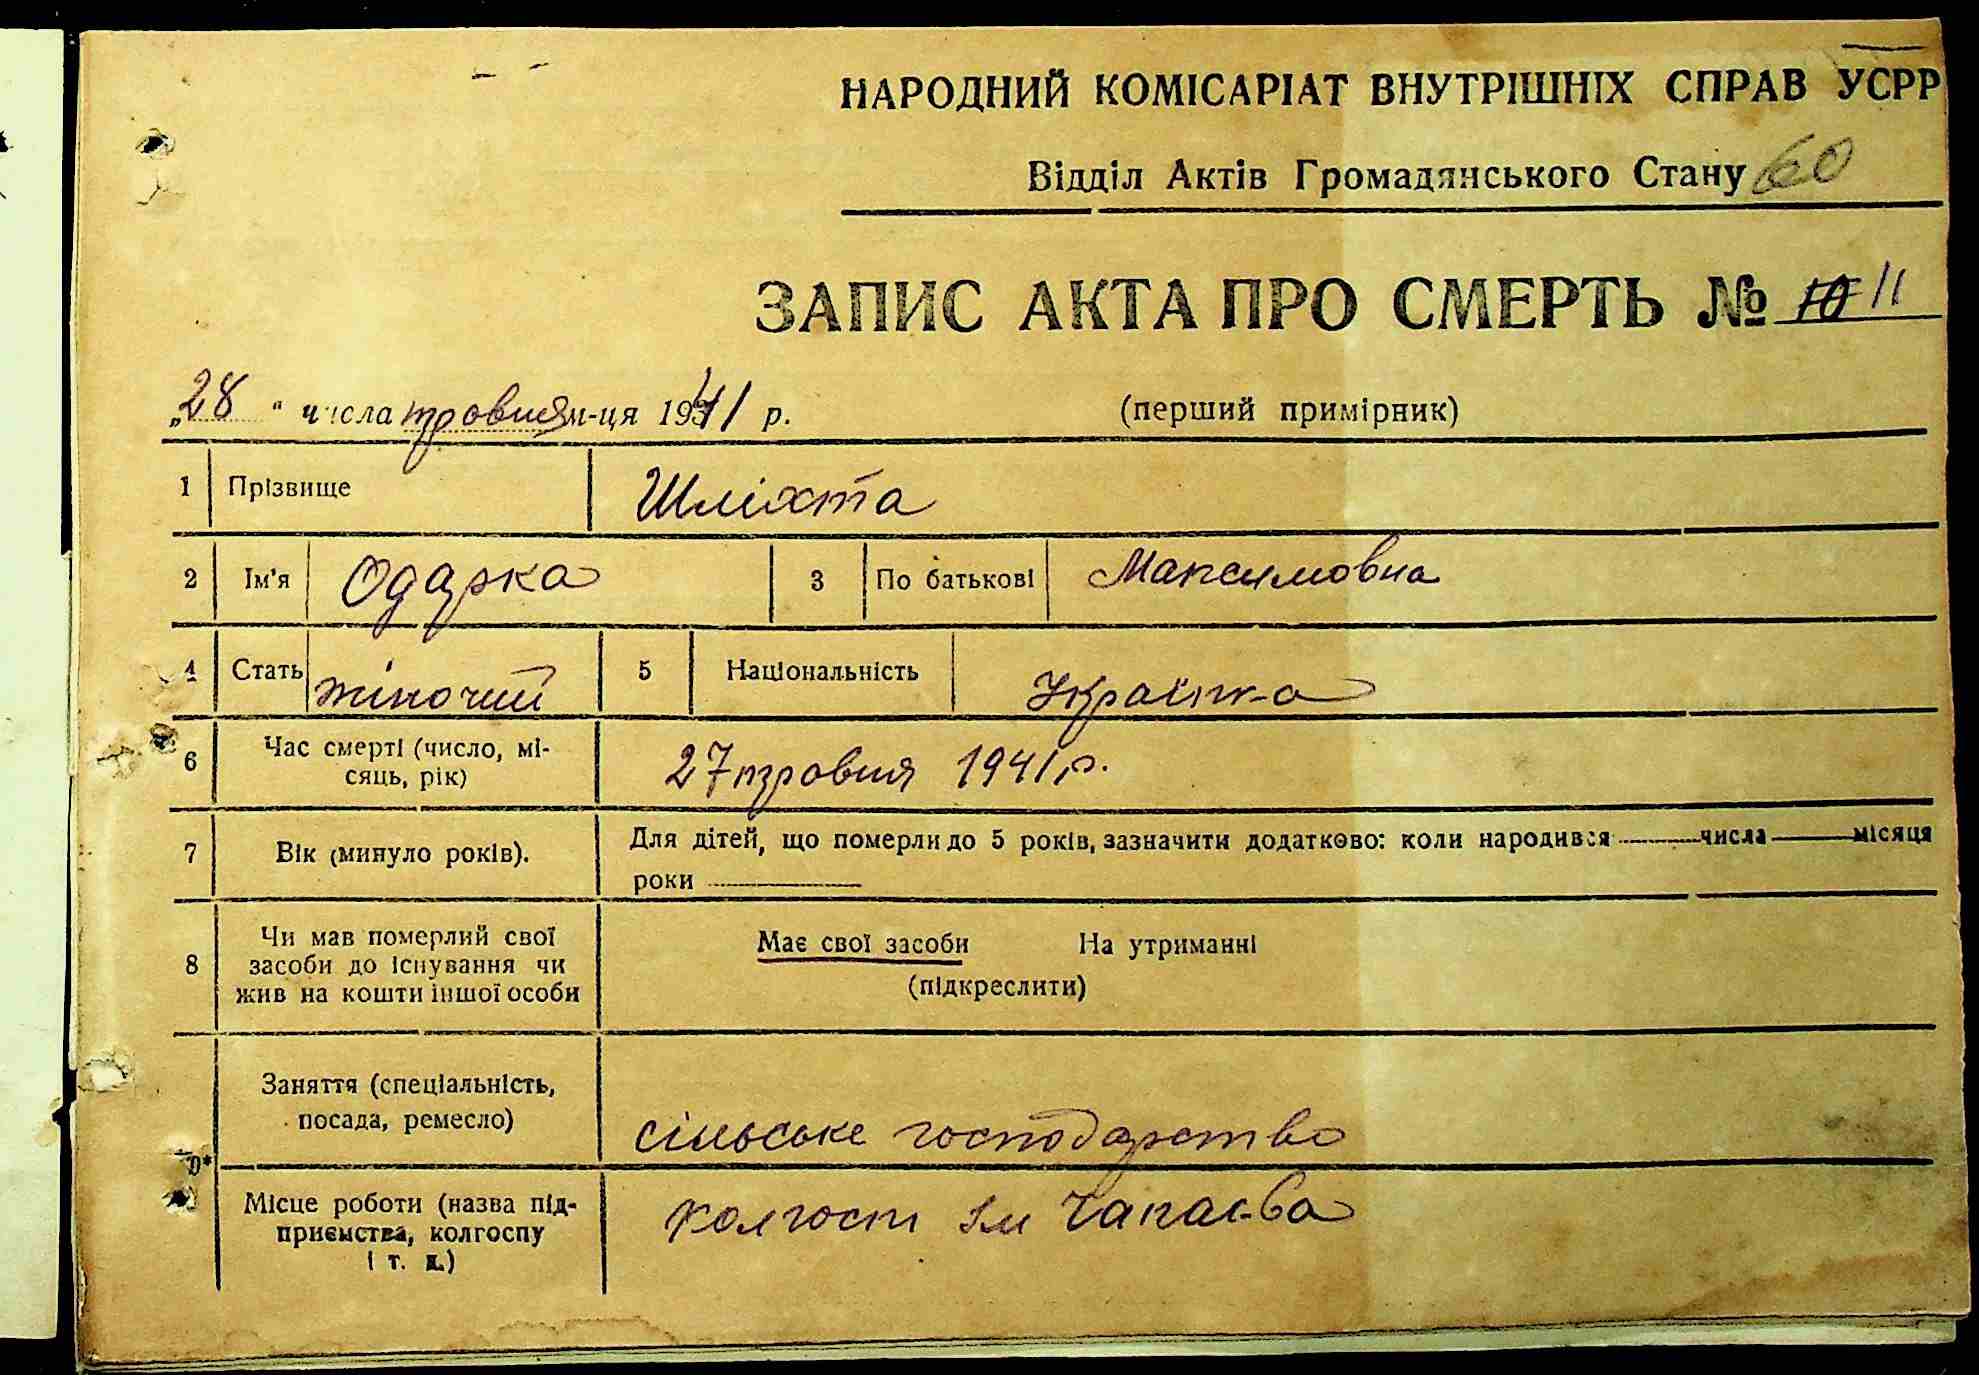 НАРОДНИЙ КОМІСАРІАТ ВНУТРІШНІХ СПРАВ УСРР
Відділ Актів Громадянського Стану 60
ЗАПИС АКТА ПРО СМЕРТЬ № 10 11
„28" числа травня м-ця 1941 р. (перший примірник)
1 Прізвище Шліхта
2 Ім'я Одарка 3 По батькові Максимовна
4 Стать жіночий 5 Національність Українка
6 Час смерті (число, мі-
сяць, рік) 27 травня 1941 р.
7 Вік (минуло років). Для дітей, що померли до 5 років, зазначити додатково: коли народився числа місяця
роки
8 Чи мав померлий свої
засоби до існування чи
жив на кошти іншої особи
Має свої засоби На утриманні
(підкреслити)
Заняття (спеціальність,
посада, ремесло) сільське господарство
9*
Місце роботи (назва під-
приємства, колгоспу
і т. д.) Колгосп ім Чапаєва